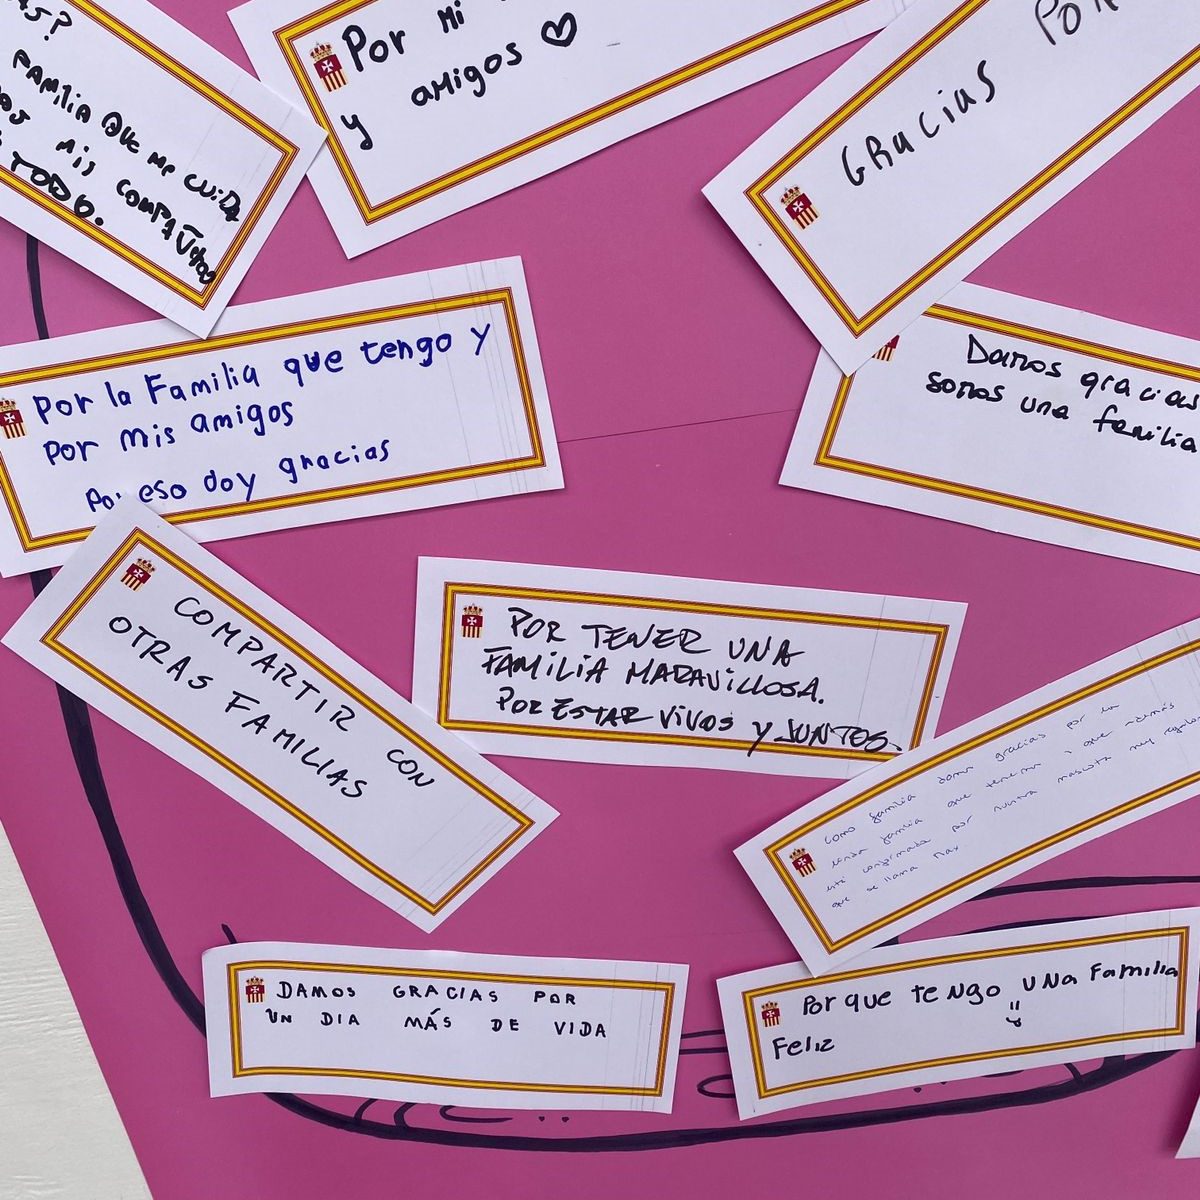 AS?
FAMILIA QUE ME CUIDA
MIS COMPAÑEROS
TODO.
Por mi
y amigos ♡
GRacias POR
Por la Familia que tengo y
Por mis amigos
Por eso doy gracias
Damos gracias
somos una familia
COMPARTIR CON
OTRAS FAMILIAS
POR TENER UNA
FAMILIA MARAVILLOSA.
POR ESTAR VIVOS Y JUNTOS.
Como familia damos gracias por la
familia que tenemos y que además
está conformada por nuestra mascota muy
que se llama Max
DAMOS GRACIAS POR
UN DIA MÁS DE VIDA
Por que tengo una Familia
Feliz